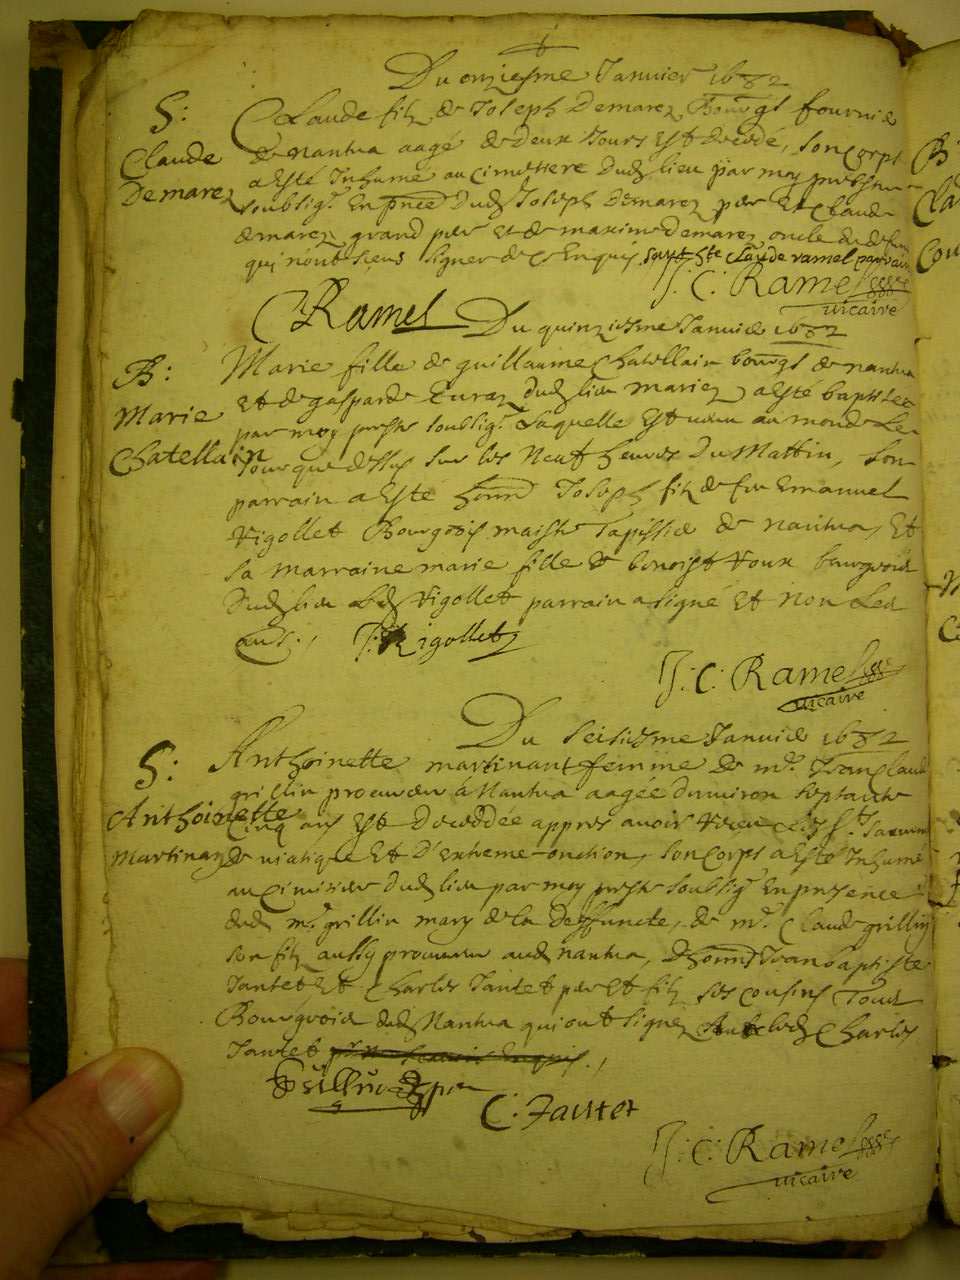 Du onziesme Janvier 1682
S:
Claude
Demarez
Claude filz de Joseph Demarez Bourgs fournie
de nantua aagé de deux Jours Est decedé, son corps
a Esté Inhumé au cimettiere dud lieu par moy prestre
soubsigé En pnce dud Joseph Demarez pere Et Claude
demarez grand pere et de maxime demarez oncle du defunt
qui n'ont sceus signer de ce Enquis sauf Claude ramel parrain
J. C. Ramel
vicaire
C Ramel
Du quinziesme Janvier 1682
B:
Marie
Chatellain
Marie fille de guillaume Chatellain bourgs de nantua
Et de gasparde dud lieu mariez a Esté baptisée
par moy prestre soubsigé laquelle Est venu au monde Le
Jour que dessus sur les Neuf heures Du Mattin, son
parrain a Esté honn Joseph filz de feu Emanuel
Rigollet Bourgeois maistre Tapissier de nantua, Et
sa marraine marie fille de benoist Roux bourgeois
Dud lieu Led Rigollet parrain a signé Et Non Lad
J: Rigollet
J. C. Ramel
vicaire
Du seisiesme Janvier 1682
S:
Anthoinette
Martinand
Anthoinette martinant femme de mr. Jean Claude
grillin procureur à Nantua aagée d'environ septante
Cinq ans Est decedée appres avoir receu Les st. Sacremt
de viatique Et D'extreme-onction, son corps a Esté Inhumé
au Cimitiere dud lieu par moy prestre soubsigé En presence
dud mr. grillin mary de la deffuncte, de mr. Claude grillin
son filz aussy procureur aud nantua, de honn Jean baptiste
Jantet Et Charles Jantet pere Et filz ses cousins Tous
Bourgeois dud Nantua qui ont signez led Charles
Jantet
Grillin
C. Jantet
J. C. Ramel
vicaire